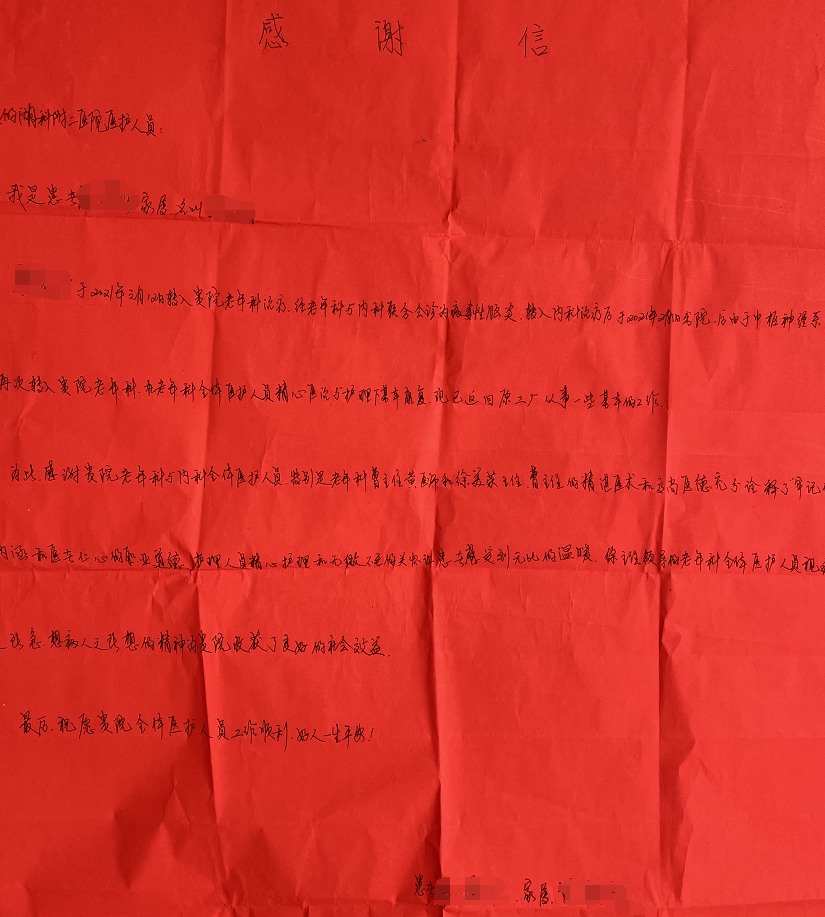 感谢信
的湖科附二医院医护人员：
我是患者 家属，名叫
于2021年元月12日转入贵院老年科治疗，经老年科与内科联合会诊为病毒性脑炎，转入内科治疗后于2021年2月 日出院，后由于中枢神经系
再次转入贵院老年科，在老年科全体医护人员精心医治与护理下基本康复，现已返回原工厂从事一些基本的工作。
为此，感谢贵院老年科与内科全体医护人员，特别是老年科曾主任黄医师和徐美荣主任，曾主任的精湛医术和高尚医德充分诠释了牢记
内涵和医者仁心的职业道德，护理人员精心护理和无微不至的关怀让患者感受到无比的温暖，徐主任领导的老年科全体医护人员视
之所急，想病人之所想的精神为贵院收获了良好的社会效益。
最后，祝愿贵院全体医护人员工作顺利，好人一生平安！
患者 家属：